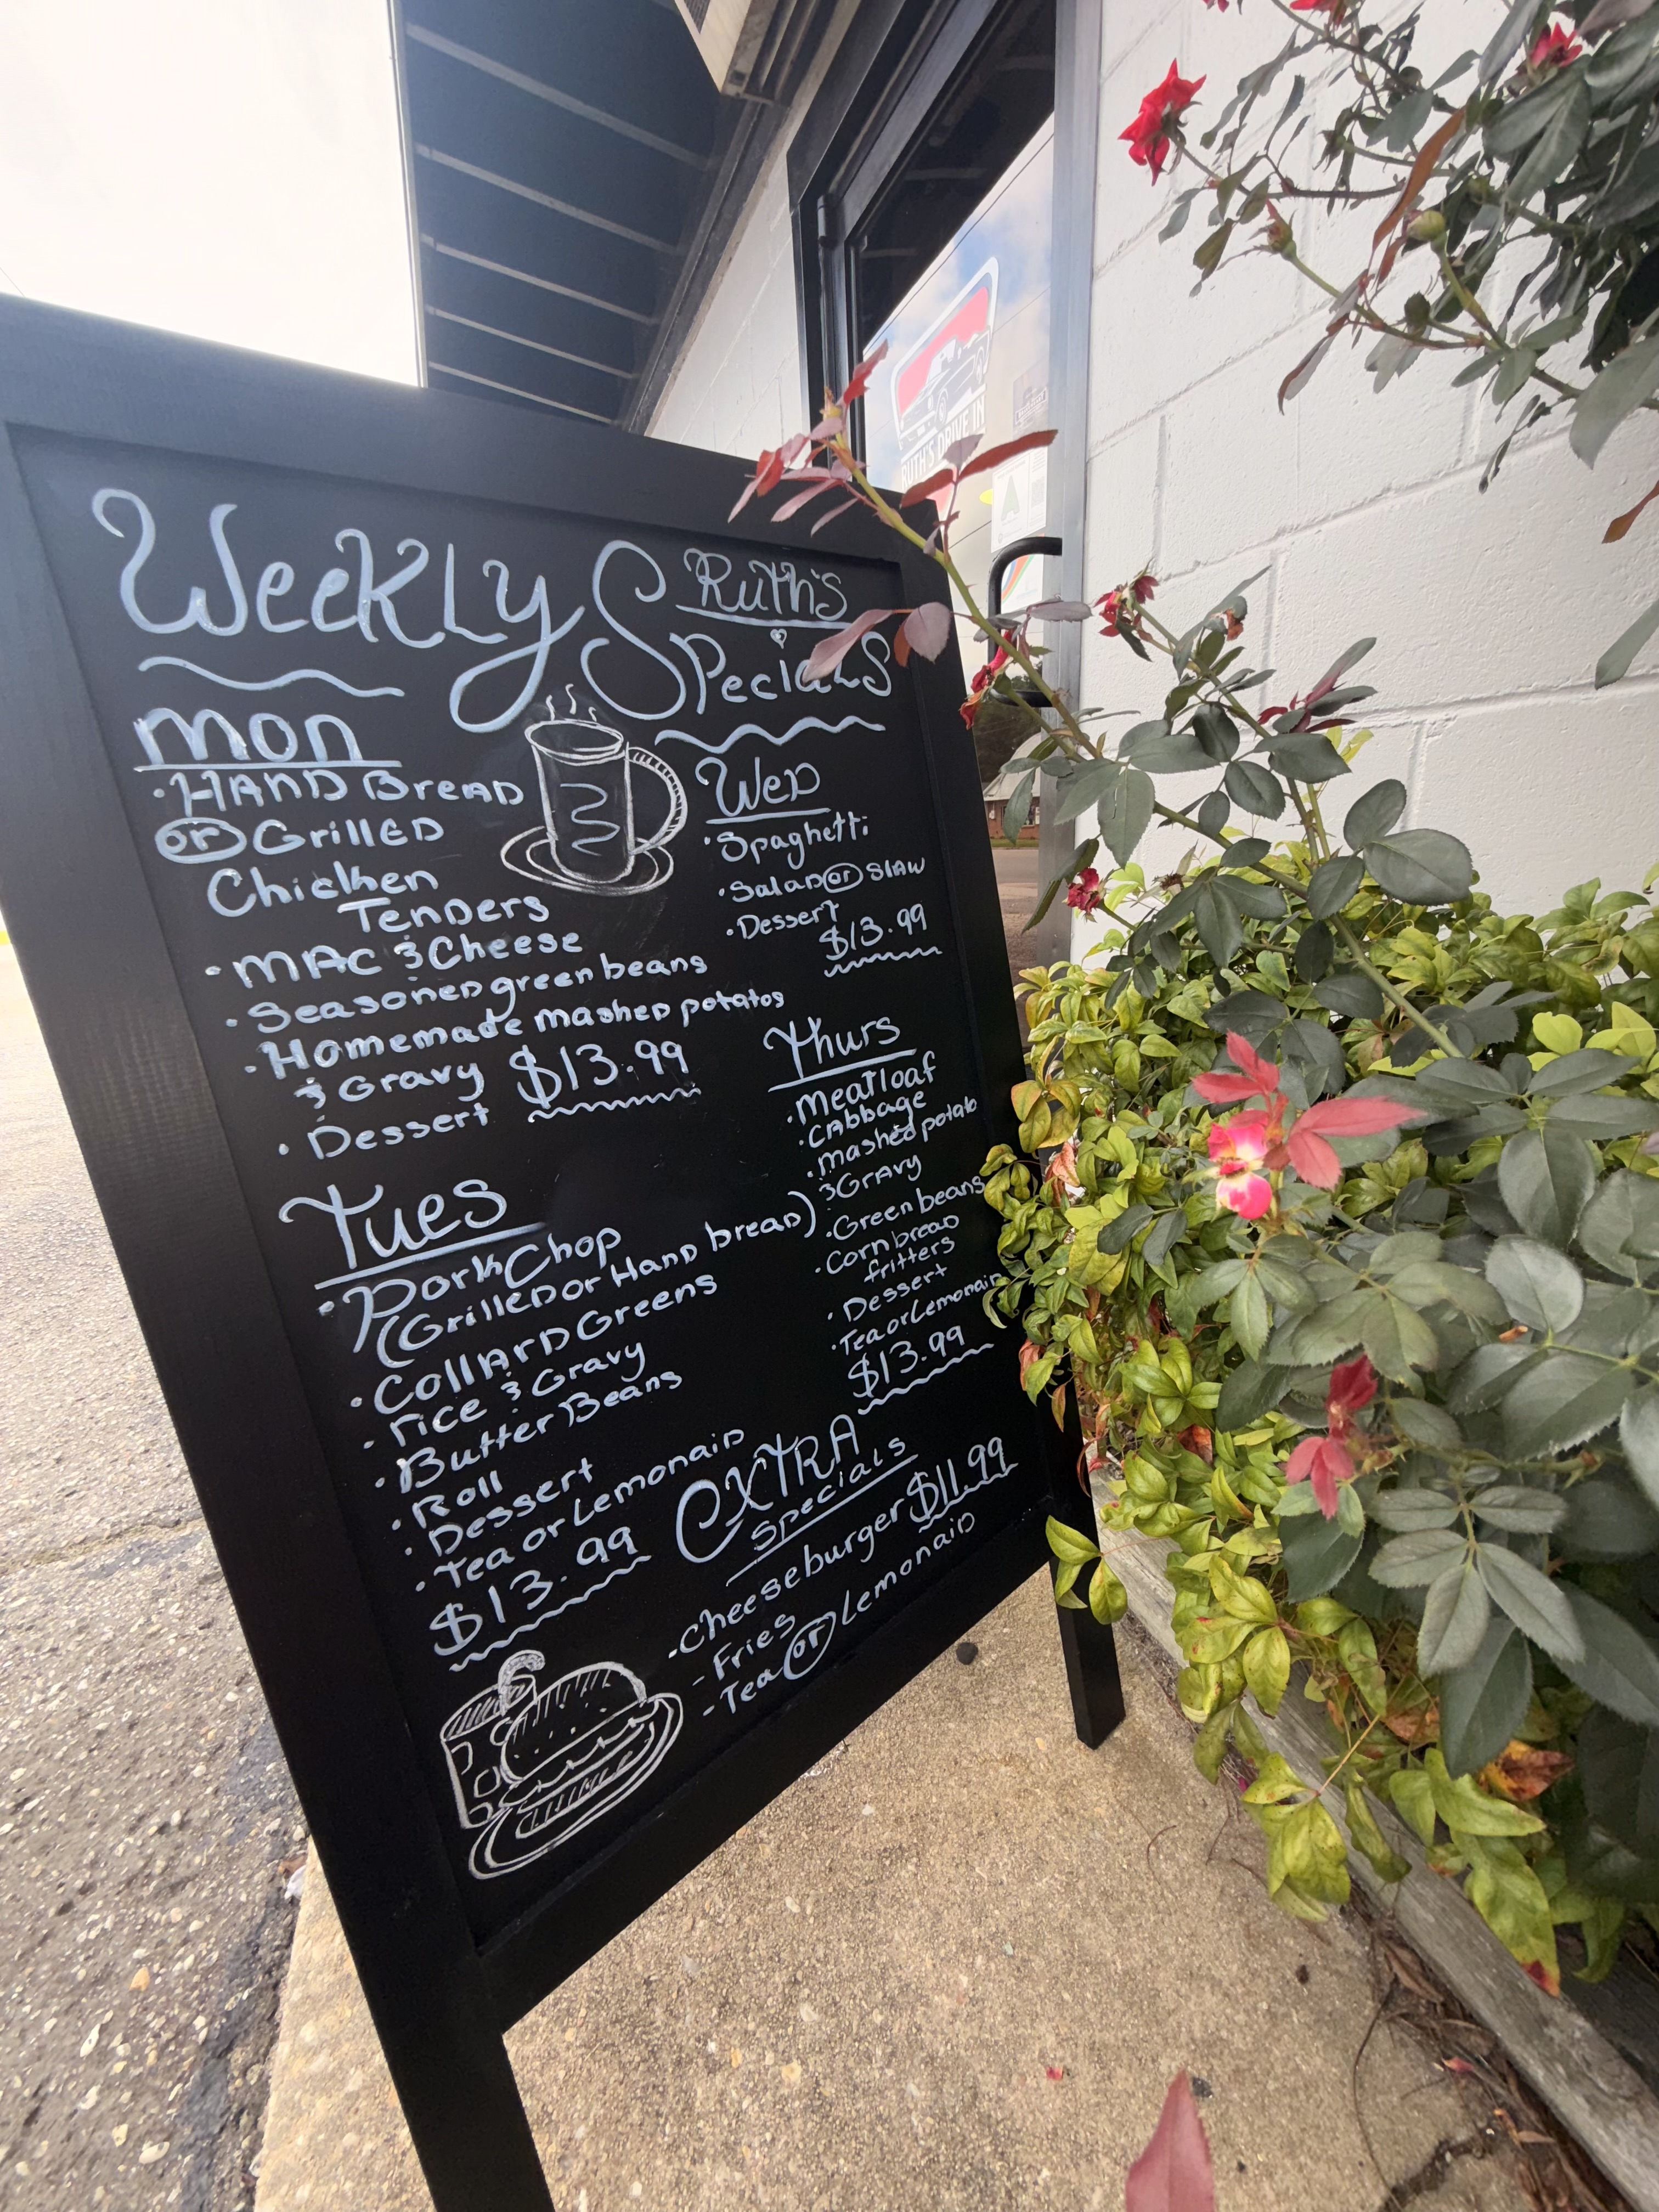 Weekly Ruth's
Specials
Mon
· Hand Bread
or Grilled
Chicken
Tenders
· Mac & Cheese
· Seasoned green beans
· Homemade mashed potatos
& Gravy $13.99
· Dessert
Tues
· Pork Chop
(Grilled or Hand bread)
· Collard Greens
· rice & Gravy
· Butter Beans
· Roll
· Dessert
· Tea or Lemonaid
$13.99
Wed
· Spaghetti
· Salad or Slaw
· Dessert
$13.99
Thurs
· Meatloaf
· Cabbage
· Mashed potato
& Gravy
· Green beans
· Corn bread
fritters
· Dessert
· Tea or Lemonaid
$13.99
Extra
Specials
- Cheeseburger $11.99
- Fries
- Tea or Lemonaid
RUTH'S DRIVE IN
A